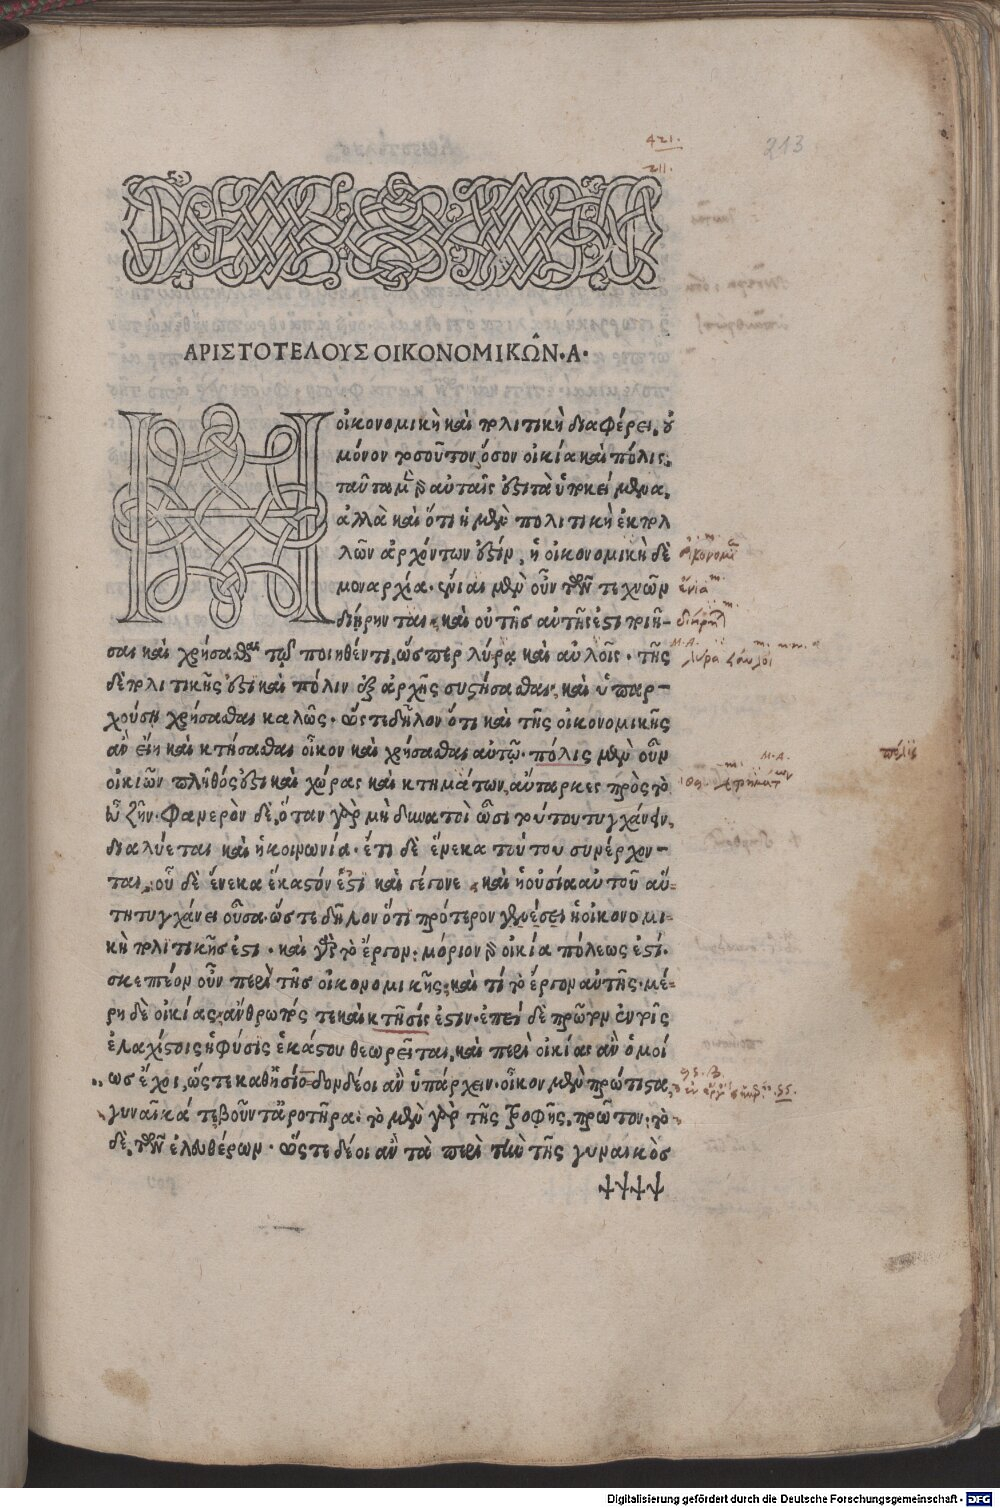 421.
213
211.
ΑΡΙΣΤΟΤΕΛΟΥΣ ΟΙΚΟΝΟΜΙΚΩ͂Ν·Α·
Η οἰκονομικὴ καὶ πολιτικὴ διαφέρει, οὐ
μόνον τοσοῦτον ὅσον οἰκία καὶ πόλις,
ταῦτα μὲν γὰρ αὐταῖς ἐστι τὰ ὑποκείμενα,
ἀλλὰ καὶ ὅτι ἡ μὲν πολιτικὴ ἐκ πολ
λῶν ἀρχόντων ἐστίν, ἡ οἰκονομικὴ δὲ
μοναρχία· ἔνιαι μὲν οὖν τῶν τεχνῶν
διῄρηνται, καὶ οὐ τῆς αὐτῆς ἐστι ποιῆ-
σαι καὶ χρήσασθαι τῷ ποιηθέντι, ὥσπερ λύρᾳ καὶ αὐλοῖς· τῆς
δὲ πολιτικῆς ἐστι καὶ πόλιν ἐξ ἀρχῆς συστήσασθαι, καὶ ὑπαρ-
χούσῃ χρήσασθαι καλῶς· ὥστε δῆλον ὅτι καὶ τῆς οἰκονομικῆς
ἂν εἴη καὶ κτήσασθαι οἶκον καὶ χρήσασθαι αὐτῷ· πόλις μὲν οὖν
οἰκιῶν πλῆθός ἐστι καὶ χώρας καὶ κτημάτων, αὔταρκες πρὸς τὸ
εὖ ζῆν· Φανερὸν δὲ, ὅταν γὰρ μὴ δυνατοὶ ὦσι τούτου τυγχάνειν,
διαλύεται καὶ ἡ κοινωνία· ἔτι δὲ ἕνεκα τούτου συνέρχον-
ται, οὗ δὲ ἕνεκα ἕκαστόν ἐστι καὶ γέγονε, καὶ ἡ οὐσία αὐτοῦ αὕ-
τη τυγχάνει οὖσα. ὥστε δῆλον ὅτι πρότερον γενέσει ἡ οἰκονομι-
κὴ πολιτικῆς ἐστι· καὶ γὰρ τὸ ἔργον· μόριον γὰρ οἰκία πόλεως ἐστί·
σκεπτέον οὖν περὶ τῆς οἰκονομικῆς, καὶ τί τὸ ἔργον αὐτῆς· μέ-
ρη δὲ οἰκίας, ἄνθρωπός τε καὶ κτῆσίς ἐστιν· ἐπεὶ δὲ πρῶτον ἐν τοῖς
ἐλαχίστοις ἡ φύσις ἑκάστου θεωρεῖται, καὶ περὶ οἰκίας ἂν ὁμοί
ως ἔχοι, ὥστε καθ' ἡσίοδον δέοι ἂν ὑπάρχειν· οἶκον μὲν πρώτιστα,
γυναῖκά τε βοῦν τ' ἀροτῆρα· τὸ μὲν γὰρ τῆς τροφῆς, πρῶτον· τὸ
δὲ, τῶν ἐλευθέρων· ὥστε δέοι ἂν τὰ περὶ τὴν τῆς γυναικὸσ
πόλις
Digitalisierung gefördert durch die Deutsche Forschungsgemeinschaft - DFG